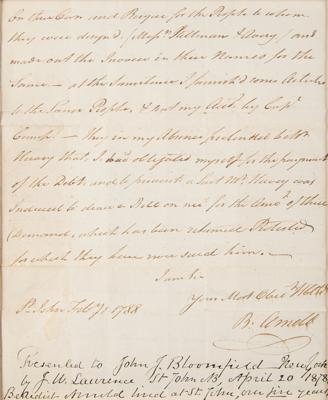 on their Own and Request for the People to whom
they were design'd, (Messrs Stillman & Avery) and
made out the Invoice in their Names for the
Same — at the Sametime I furnish'd some Articles
to the Same People, & not my Acct by Capt
— they in my Absence pretended to Mr
that I had obligated myself for the payment
of the Debt, and to prevent a Suit Mr was
Induced to draw a Bill on me for the Amot of there
Demand, which has been returned Protested
for which they have sued him. —
I am Sir
Your Most Obedt Hble
St John Feby 1788
B. Arnold
Presented to John J. Bloomfield New York
by J. W. Lawrence St John N.B, April 20 1878
Benedict Arnold lived at St John, over five years